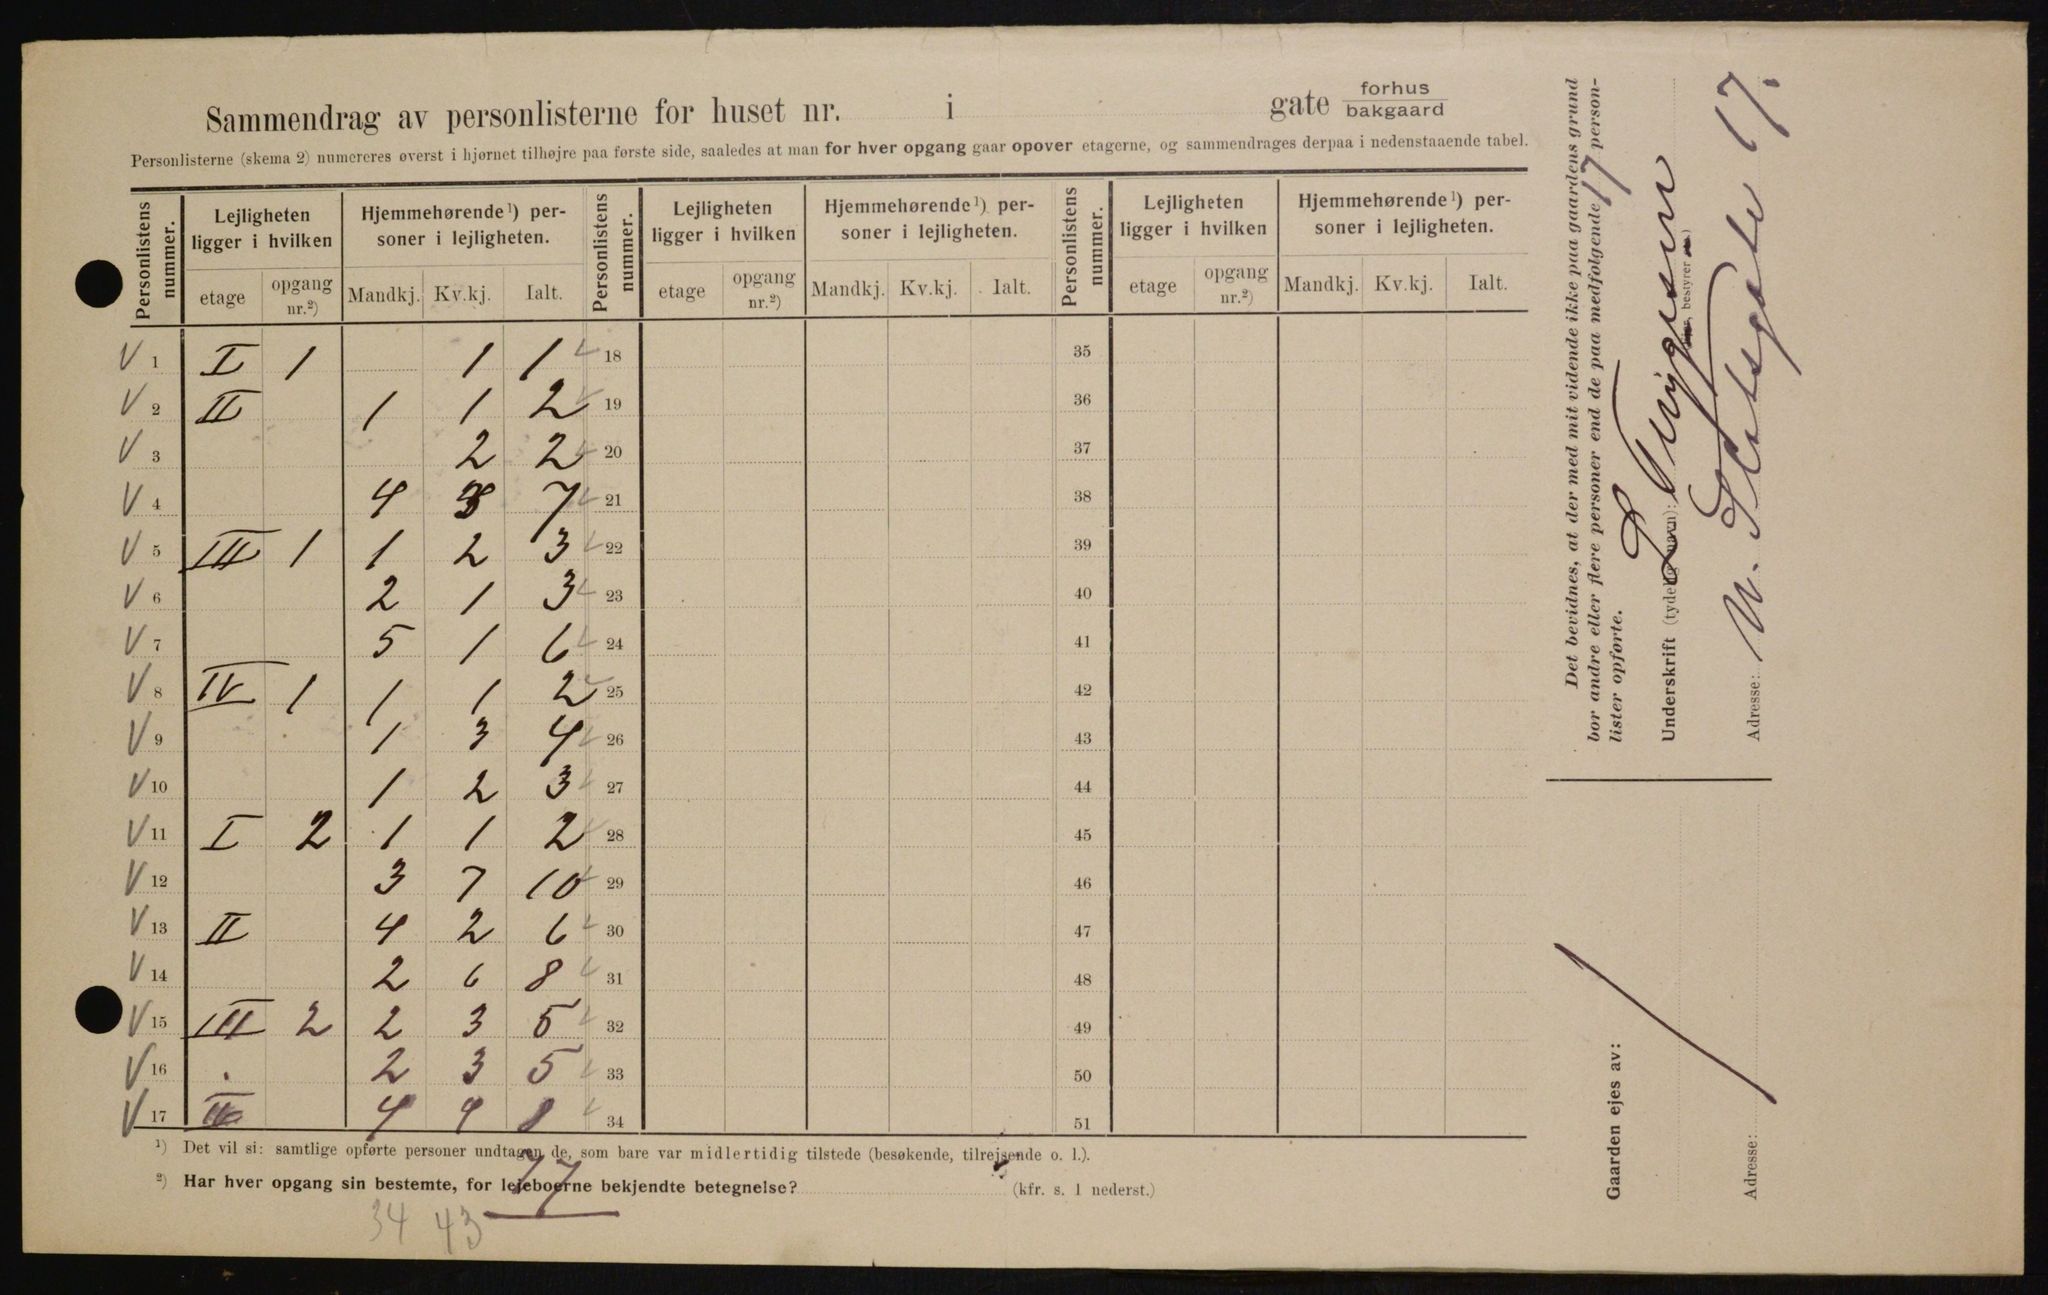 Sammendrag av personlisterne for huset nr. i gate forhus
bakgaard
Personlisterne (skema 2) numereres øverst i hjørnet tilhøjre paa første side, saaledes at man for hver opgang gaar opover etagerne, og sammendrages derpaa i nedenstaaende tabel.
Personlistens nummer. Lejligheten ligger i hvilken Hjemmehørende¹) personer i lejligheten. Personlistens nummer. Lejligheten ligger i hvilken Hjemmehørende¹) personer i lejligheten. Personlistens nummer. Lejligheten ligger i hvilken Hjemmehørende¹) personer i lejligheten.
etage opgang nr.²) Mandkj. Kv.kj. Ialt. etage opgang nr.²) Mandkj. Kv.kj. Ialt. etage opgang nr.²) Mandkj. Kv.kj. Ialt.
V 1 I 1 1 1 18 35
V 2 II 1 1 2 19 36
V 3 2 2 20 37
V 4 4 3 7 21 38
V 5 III 1 1 2 3 22 39
V 6 2 1 3 23 40
V 7 5 1 6 24 41
V 8 IV 1 1 1 2 25 42
V 9 1 3 4 26 43
V 10 1 2 3 27 44
V 11 I 2 1 1 2 28 45
V 12 3 7 10 29 46
V 13 II 4 2 6 30 47
V 14 2 6 8 31 48
V 15 III 2 2 3 5 32 49
V 16 2 3 5 33 50
V 17 4 4 8 34 51
¹) Det vil si: samtlige opførte personer undtagen de, som bare var midlertidig tilstede (besøkende, tilrejsende o. l.).
²) Har hver opgang sin bestemte, for lejeboerne bekjendte betegnelse? (kfr. s. 1 nederst.)
77
34 43
Det bevidnes, at der med mit vidende ikke paa gaardens grund
bor andre eller flere personer end de paa medfølgende 17 person-
lister opførte.
Underskrift (tydelig navn):
bestyrer
Adresse: 17.
Gaarden ejes av:
Adresse: